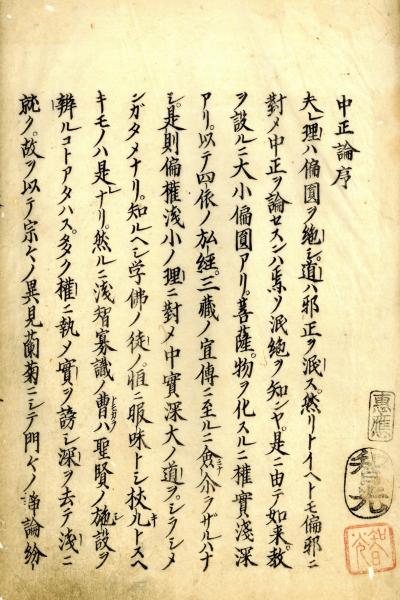 中正論序
夫レ理ハ偏圓ヲ絶シ道ハ邪正ヲ泯ス然リトイヘトモ偏邪ニ
對メ中正ヲ論セスンハ焉ソ泯絶ヲ知ンヤ是ニ由テ如来教
ヲ設ルニ大小偏圓アリ菩薩物ヲ化スルニ權實淺深
アリ以テ四依ノ弘經三藏ノ宣傳ニ至ルニ僉介ラザルハナ
シ是則偏權浅小ノ理ニ對メ中實深大ノ道ヲシラシメ
ンガタメナリ知ルヘシ学佛ノ徒ノ恒ニ眼味トシ杖ルトスヘ
キモノハ是ナリ然ルニ淺智寡識ノ曹ハ聖賢ノ施設ヲ
辨ルコトアタハス多ク權ニ執メ實ヲ謗シ深ヲ去テ浅ニ
就ク故ヲ以テ宗々ノ異見蘭菊ニシテ門々ノ諍論紛
惠應